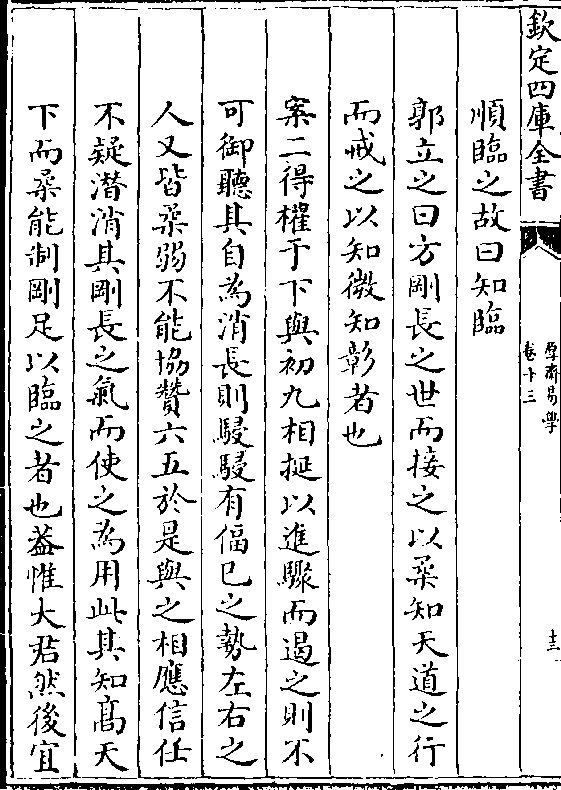 欽定四庫全書
厚齋易學
卷十三
十三
順臨之故曰知臨
郭立之曰方剛長之世而接之以柔知天道之行
而戒之以知微知彰者也
案二得權于下與初九相挻以進驟而遏之則不
可御聽其自為消長則駸駸有偪已之勢左右之
人又皆柔弱不能協贊六五於是與之相應信任
不疑潜消其剛長之氣而使之為用此其知髙天
下而柔能制剛足以臨之者也葢惟大君然後宜